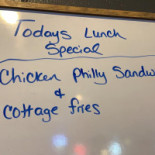 Todays Lunch
Special
Chicken Philly Sandw
&
Cottage fries